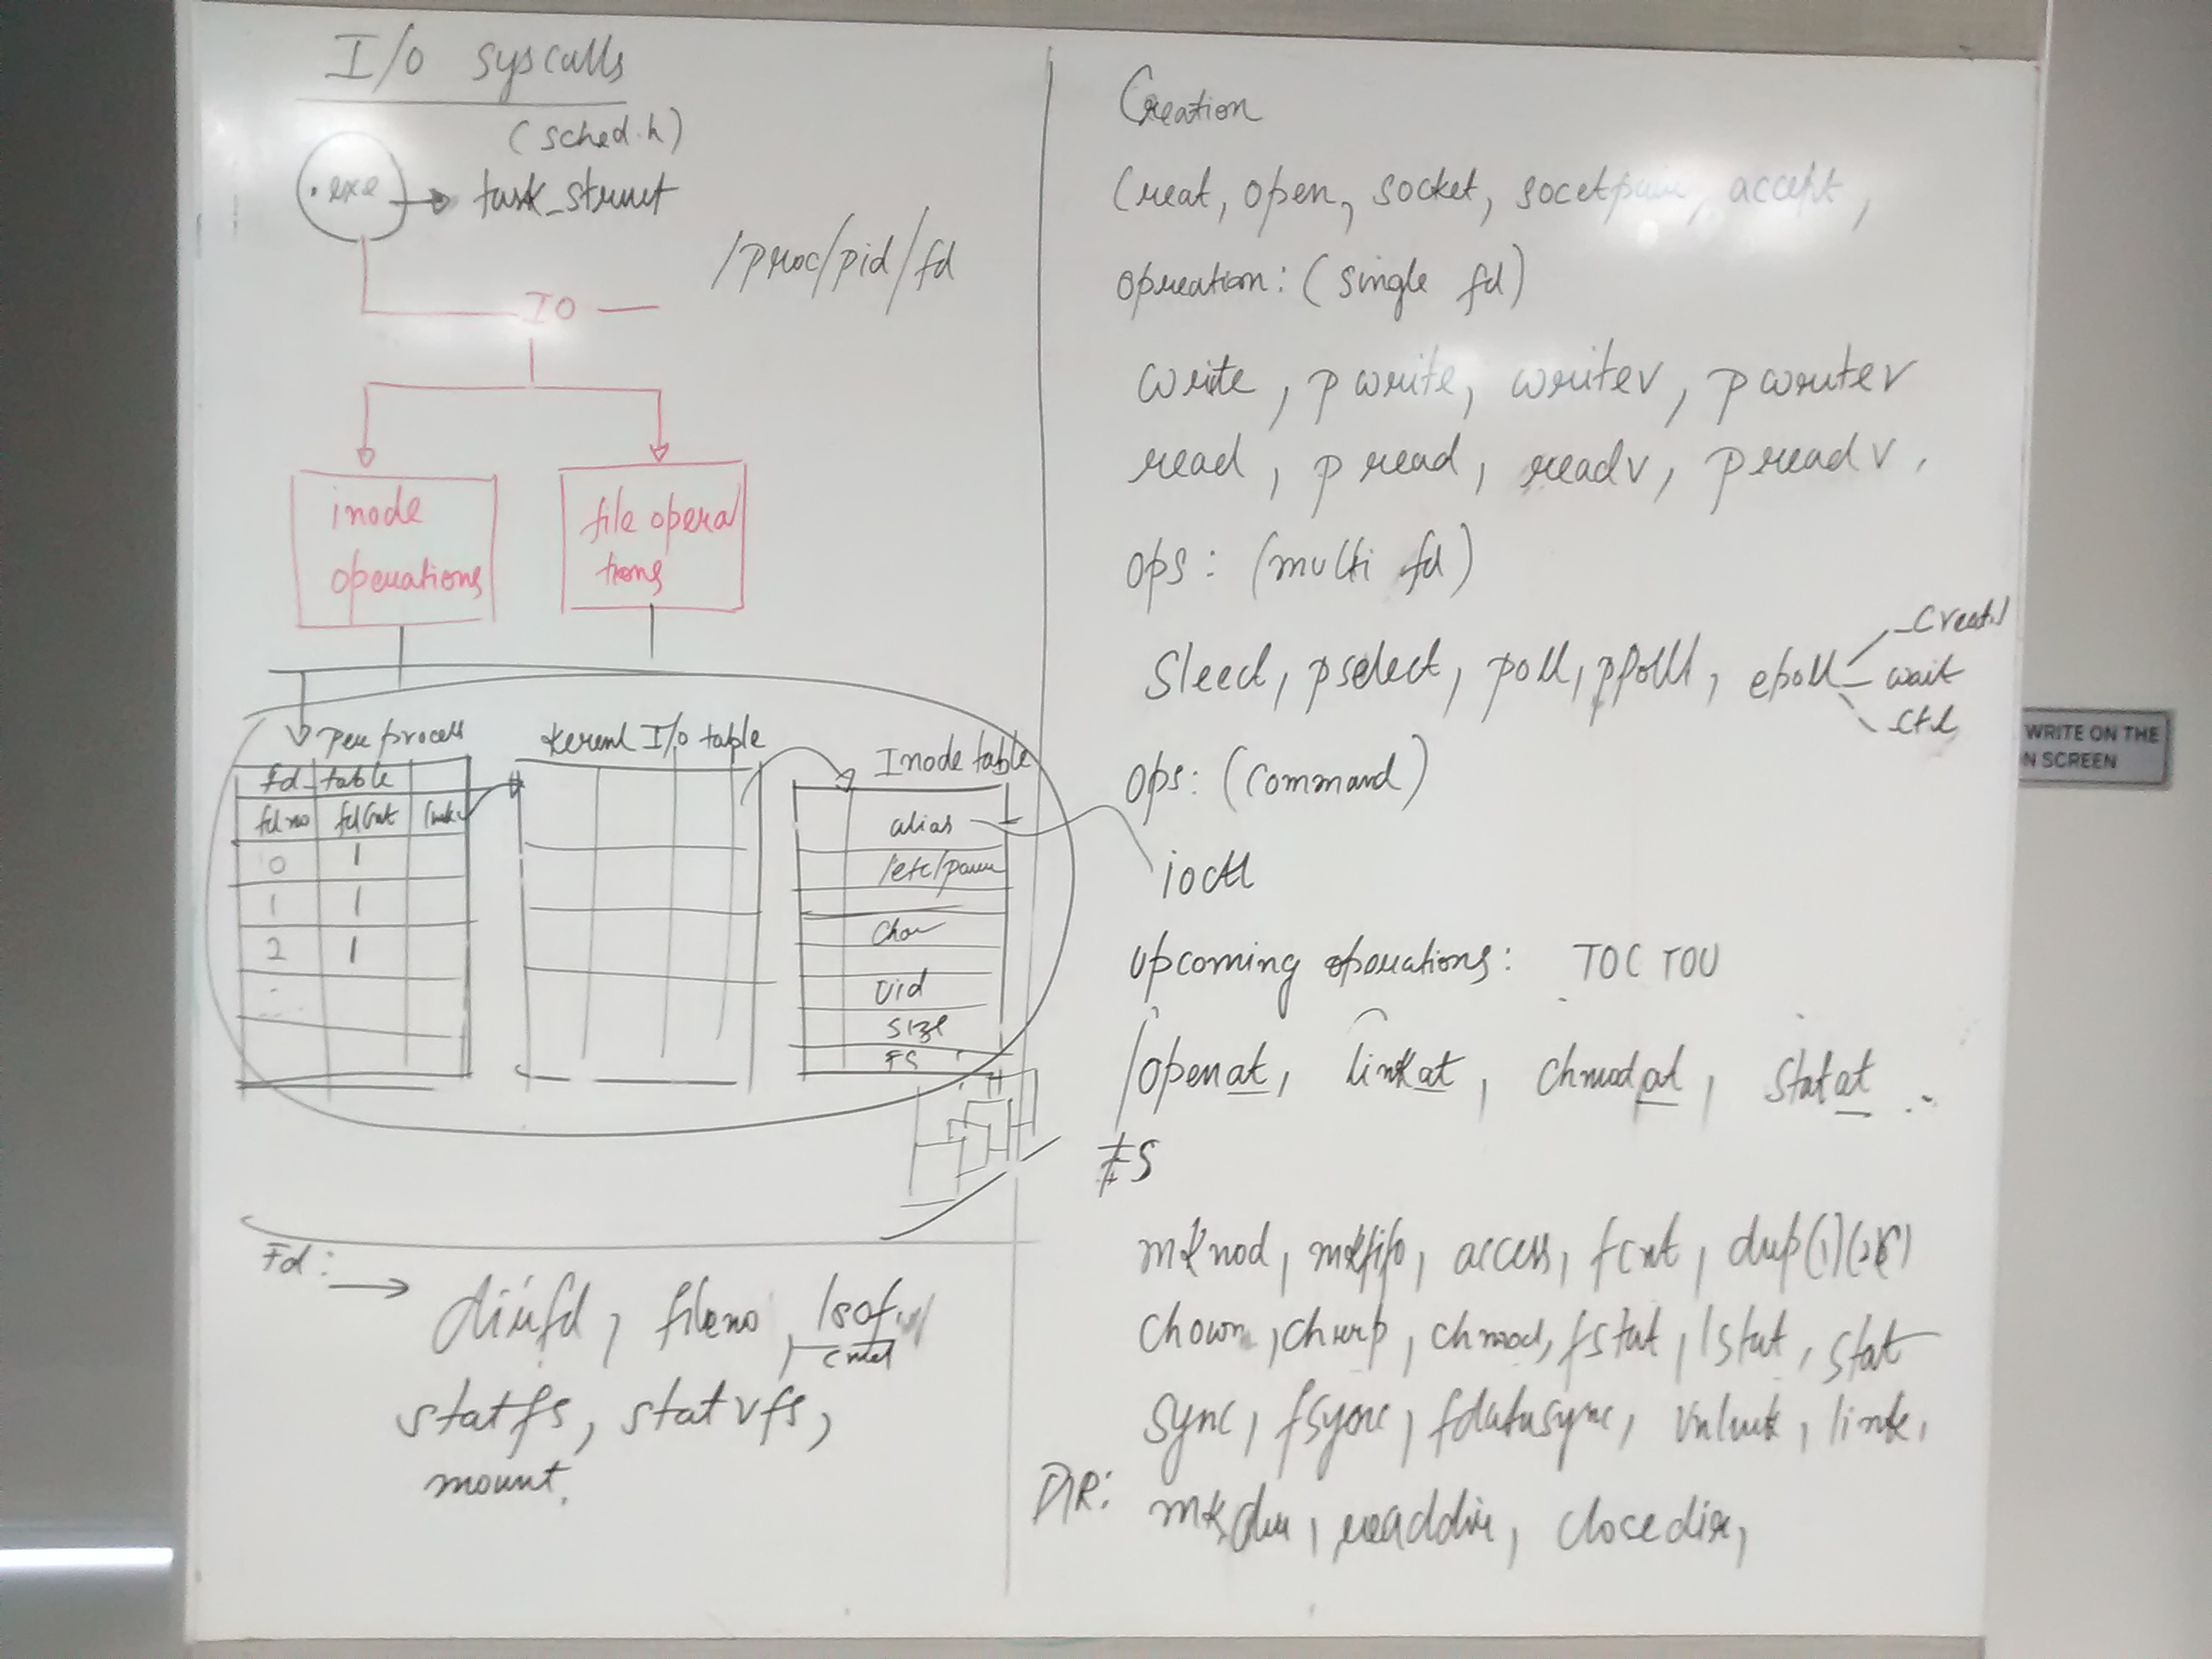 I/O syscalls
(sched.h)
.exe → task_struct
/proc/pid/fd
IO
inode
operations
file opera
tions
per process
fd_table
fd no fd cnt
0 1
1 1
2 1
Kerenl I/o table
Inode table
alias
Uid
size
FS
Fd: →
dirfd, fileno, lsof
cmd
statfs, statvfs,
mount.
Creation
Creat, open, socket, socetpair, accept,
opreation: (single fd)
write, pwrite, writev, pwritev
read, pread, readv, preadv,
ops: (multi fd)
Sleect, pselect, poll, ppoll, epoll
wait
ctl
ops: (command)
ioctl
upcoming operations: TOC TOU
openat, linkat, chmodat, statat ..
FS
mknod, mkfifo, access, fcnt, dup(1)
chown, chgrp, chmod, fstat, lstat, stat
sync, fsync, fdatasync, unlink, link,
DIR: mkdir, readdir, closedir,
WRITE ON THE
N SCREEN